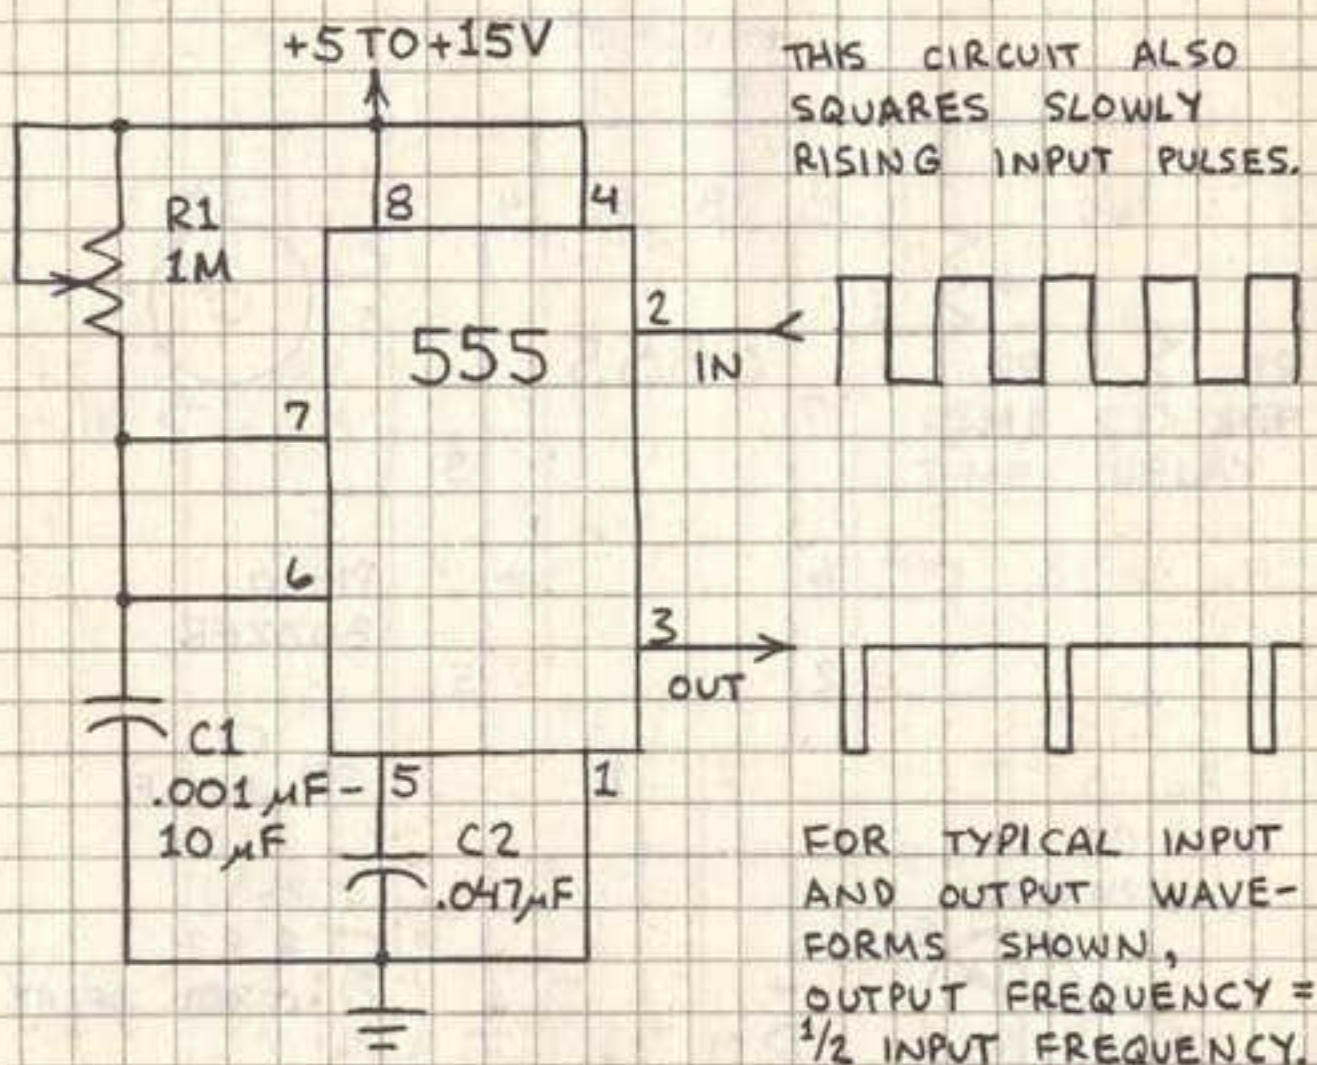 +5 TO +15V
THIS CIRCUIT ALSO
SQUARES SLOWLY
RISING INPUT PULSES.
8
4
R1
1M
555
2
IN
7
6
3
OUT
C1
.001 μF-
10 μF
5
1
C2
.047μF
FOR TYPICAL INPUT
AND OUTPUT WAVE-
FORMS SHOWN,
OUTPUT FREQUENCY =
1/2 INPUT FREQUENCY.